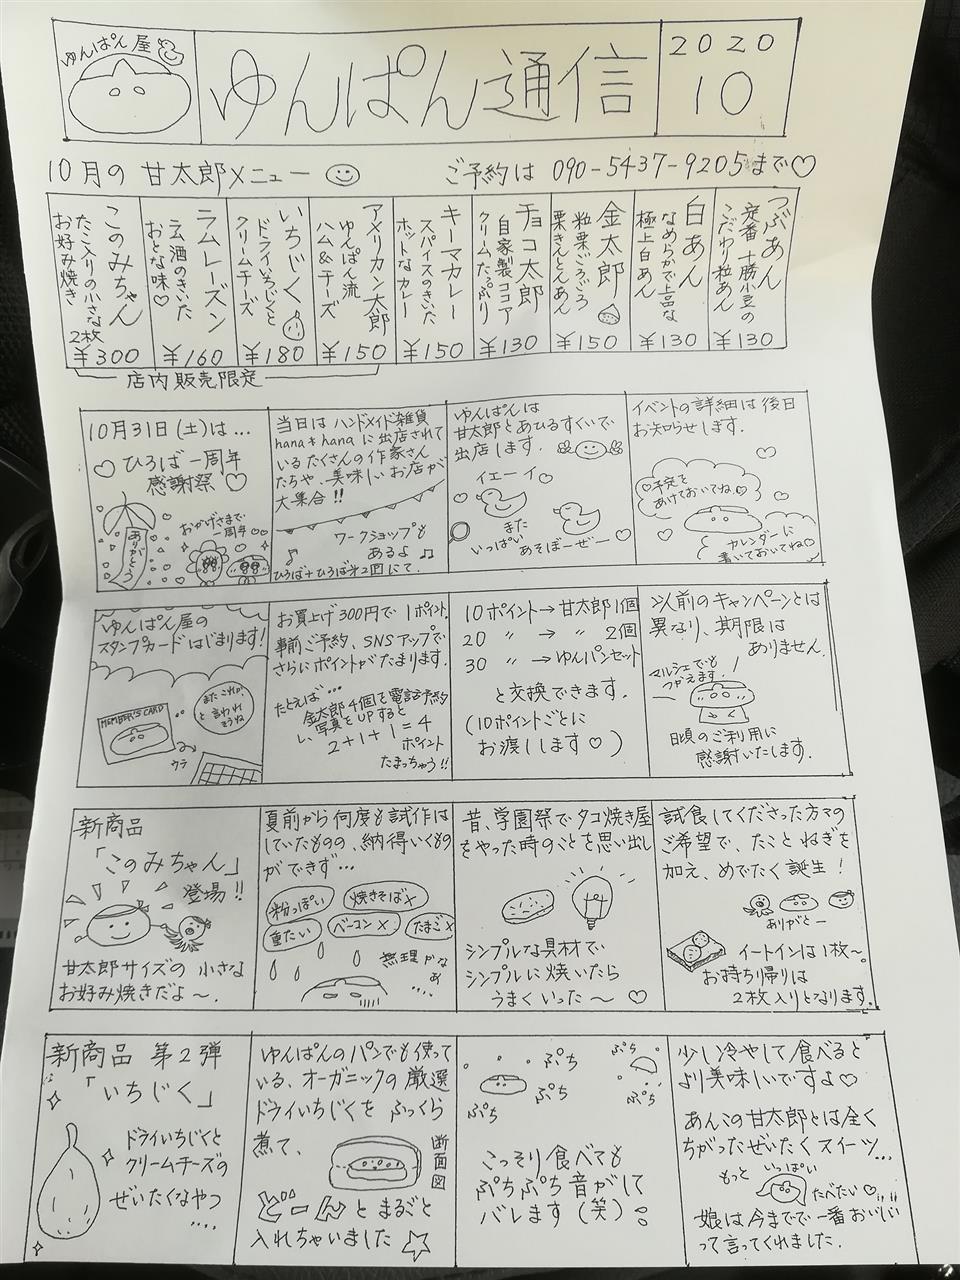 ゆんぱん屋
ゆんぱん通信
2020
10
10月の 甘太郎メニュー
ご予約は 090-5437-9205まで♡
つぶあん
定番 十勝小豆の
こだわり粒あん
¥130
白あん
なめらかで上品な
極上白あん
¥130
金太郎
粒栗ごろごろ
栗きんとんあん
¥150
チョコ太郎
自家製ココア
クリームたっぷり
¥130
キーマカレー
スパイスのきいた
ホットなカレー
¥150
アメリカン太郎
ゆんぱん流
ハム&チーズ
¥150
いちじく
ドライいちじくと
クリームチーズ
¥180
ラムレーズン
ラム酒のきいた
おとな味♡
¥160
このみちゃん
たこ入りの小さな
お好み焼き
2枚
¥300
店内販売限定
10月31日(土)は…
♡ひろば一周年
感謝祭♡
ありがとう
おかげさまで
一周年♡♡
当日は ハンドメイド雑貨
hana*hana に出店されて
いるたくさんの作家さん
たちや、美味しいお店が
大集合!!
ワークショップも
あるよ♫
ひろば+ひろば第2回にて.
ゆんぱんは
甘太郎とあひるすくいで
出店します。
イエーイ♡
また
いっぱい
あそぼーぜー♡
イベントの詳細は後日
お知らせします.
♡予定を
あけておいてね♡
カレンダーに
書いておいてね♡
ゆんぱん屋の
スタンプカードはじまります!
MEMBER'S CARD
またこれか、
と言われ
そうね
ウラ
お買上げ300円で1ポイント.
事前ご予約、SNSアップで
さらにポイントがたまります.
たとえば…
金太郎4個を電話予約
し、写真をUPすると
2+1+1=4
ポイント
たまっちゃう!!
10ポイント→甘太郎1個
20 〃 → 〃 2個
30 〃 →ゆんパンセット
と交換できます.
(10ポイントごとに
お渡しします♡)
以前のキャンペーンとは
異なり、期限は
ありません.
マルシェでも
つかえます!
日頃のご利用に
感謝いたします.
新商品
「このみちゃん」
登場!!
甘太郎サイズの小さな
お好み焼きだよ〜.
夏前から何度も試作は
していたものの、納得いくもの
ができず…
粉っぽい
焼きそば×
重たい
ベーコン×
たまご×
無理かな
ぁ
....
昔、学園祭でタコ焼き屋
をやった時のことを思い出し
シンプルな具材で
シンプルに焼いたら
うまくいった〜♡
試食してくださった方々の
ご希望で、たことねぎを
加え、めでたく誕生!
ありがとー
イートインは1枚〜.
お持ち帰りは
2枚入りとなります.
新商品 第2弾
「いちじく」
ドライいちじくと
クリームチーズの
ぜいたくなやつ
....
ゆんぱんのパンでも使って
いる、オーガニックの厳選
ドライいちじくを ふっくら
煮て、
断面図
どーんとまるごと
入れちゃいました☆
ぷち
ぷち
ぷち
ぷち
ぷち
こっそり食べても
ぷちぷち音がして
バレます(笑)
少し冷やして食べると
より美味しいですよ♡
あんこの甘太郎とは全く
ちがったぜいたくスイーツ…
もっと
いっぱい
たべたい♡
娘は今までで一番おいしい
って言ってくれました.